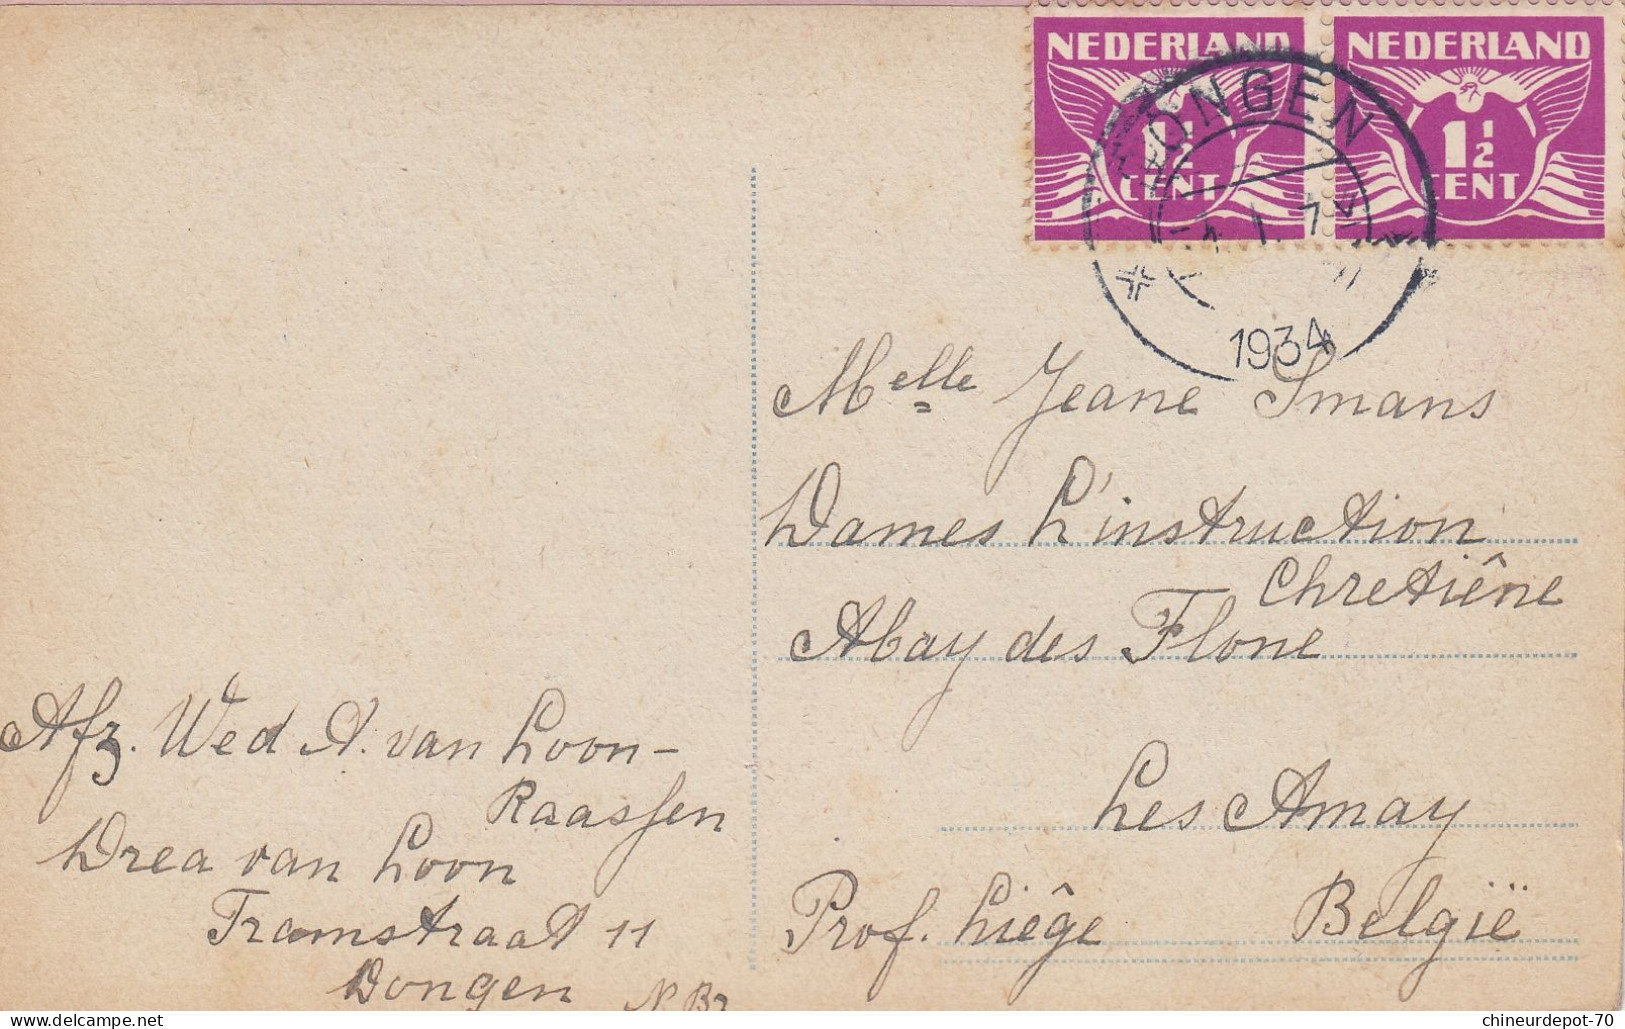 NEDERLAND NEDERLAND
1½ CENT 1½ CENT
DONGEN
1934
Melle Jeane Smans
Dames L'instruction
Chretiêne
Abay des Flone
Les Amay
Prof. Liêge België
Afz. Wed A. van Loon-
Raassen
Drea van Loon
Tramstraat 11
Dongen N. Br
chineurdepot-70